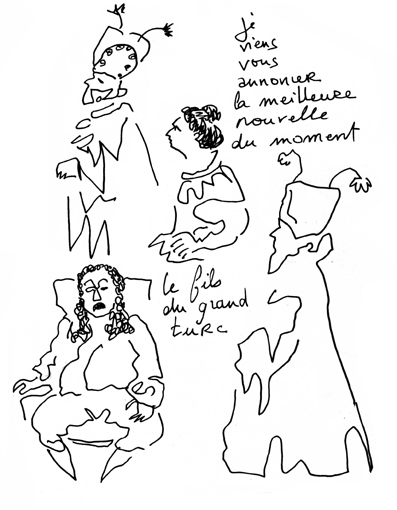 je
viens
vous
annoncer
la meilleure
nouvelle
du moment
le fils
du grand
turc